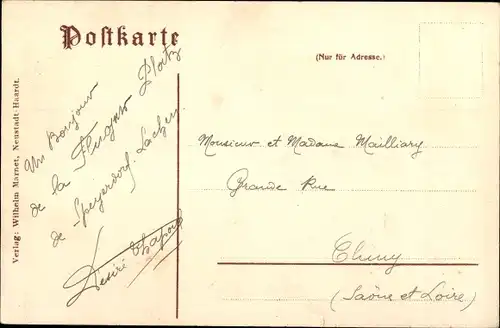 Postkarte
(Nur für Adresse.)
Verlag: Wilhelm Marnet, Neustadt-Haardt.
Un Bonjour
de la Flugzeug Platz
de Speyerdorf-Lachen
Désiré
Monsieur et Madame Mailliary
Grande Rue
Cluny
(Saône et Loire)